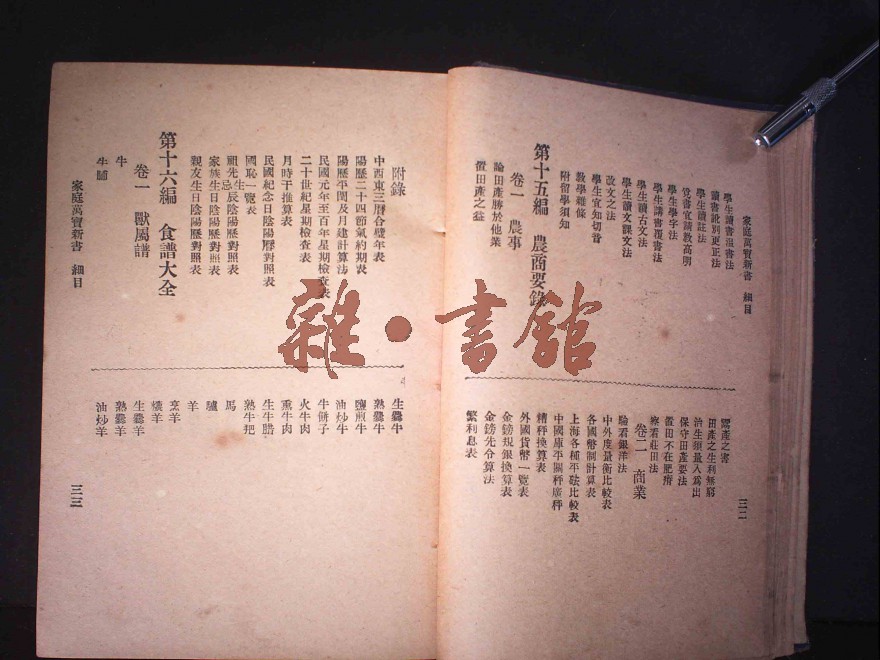 家庭萬寶新書 細目
學生讀書溫書法
讀書訛別更正法
學生讀註法
覺書宜請教高明
學生學字法
學生講書覆書法
學生讀古文法
學生讀文課文法
改文之法
學生宜知切音
教學雜條
附留學須知
第十五編 農商要錄
卷一 農事
論田產勝於他業
置田產之益
鬻產之害
田產之生利無窮
治生須量入為出
保守田產要法
置田不在肥瘠
察看莊田法
卷二 商業
驗看銀洋法
中外度量衡比較表
各國幣制計算表
上海各種平砝比較表
中國庫平關秤廣秤
精秤換算表
外國貨幣一覽表
金鎊規銀換算表
金鎊先令算法
繁利息表
三二
附錄
中西東三曆合璧年表
陽歷二十四節氣約期表
陽歷平閏及月建計算法
民國元年至百年星期檢查表
二十世紀星期檢查表
月時干推算表
民國紀念日陰陽曆對照表
國恥一覽表
祖先生忌辰陰陽歷對照表
家族生日陰陽歷對照表
親友生日陰陽歷對照表
第十六編 食譜大全
卷一 獸屬譜
牛
牛脯
生爨牛
熟爨牛
鹽煎牛
油炒牛
牛餅子
火牛肉
熏牛肉
生牛腊
熟牛把
馬
驢
羊
烹羊
爊羊
生爨羊
熟爨羊
油炒羊
家庭萬寶新書 細目
三三
雜·書館